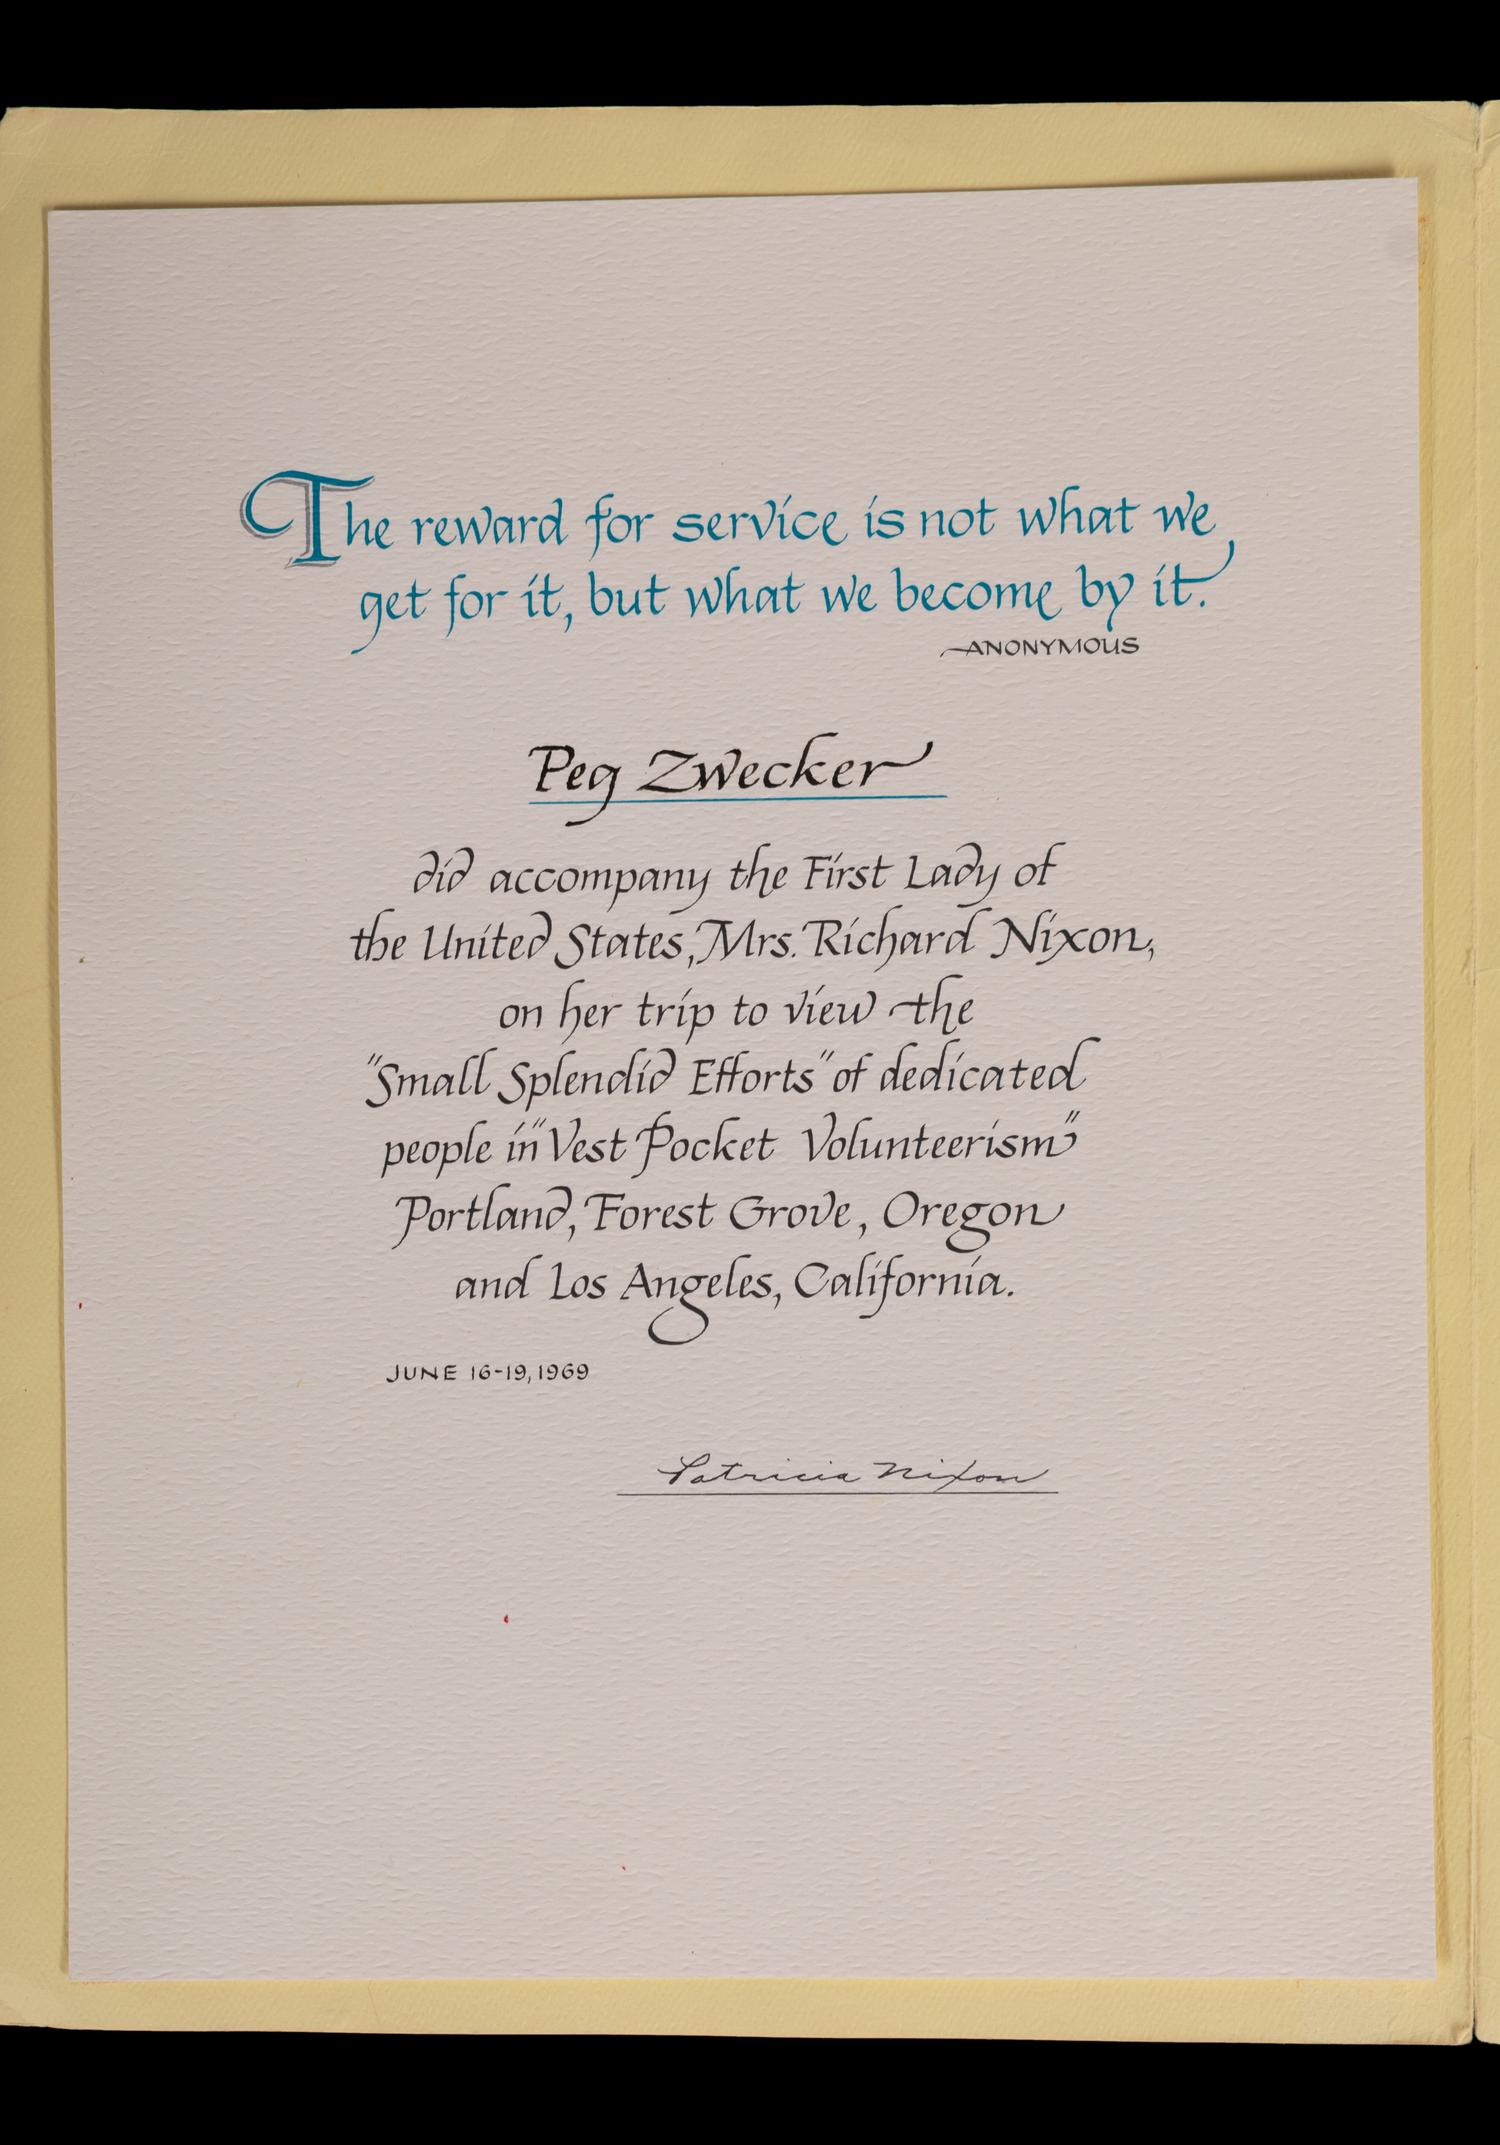 The reward for service is not what we
get for it, but what we become by it.
—ANONYMOUS
Peg Zwecker
did accompany the First Lady of
the United States, Mrs. Richard Nixon,
on her trip to view the
"Small Splendid Efforts" of dedicated
people in "Vest Pocket Volunteerism"
Portland, Forest Grove, Oregon
and Los Angeles, California.
JUNE 16-19, 1969
Patricia Nixon